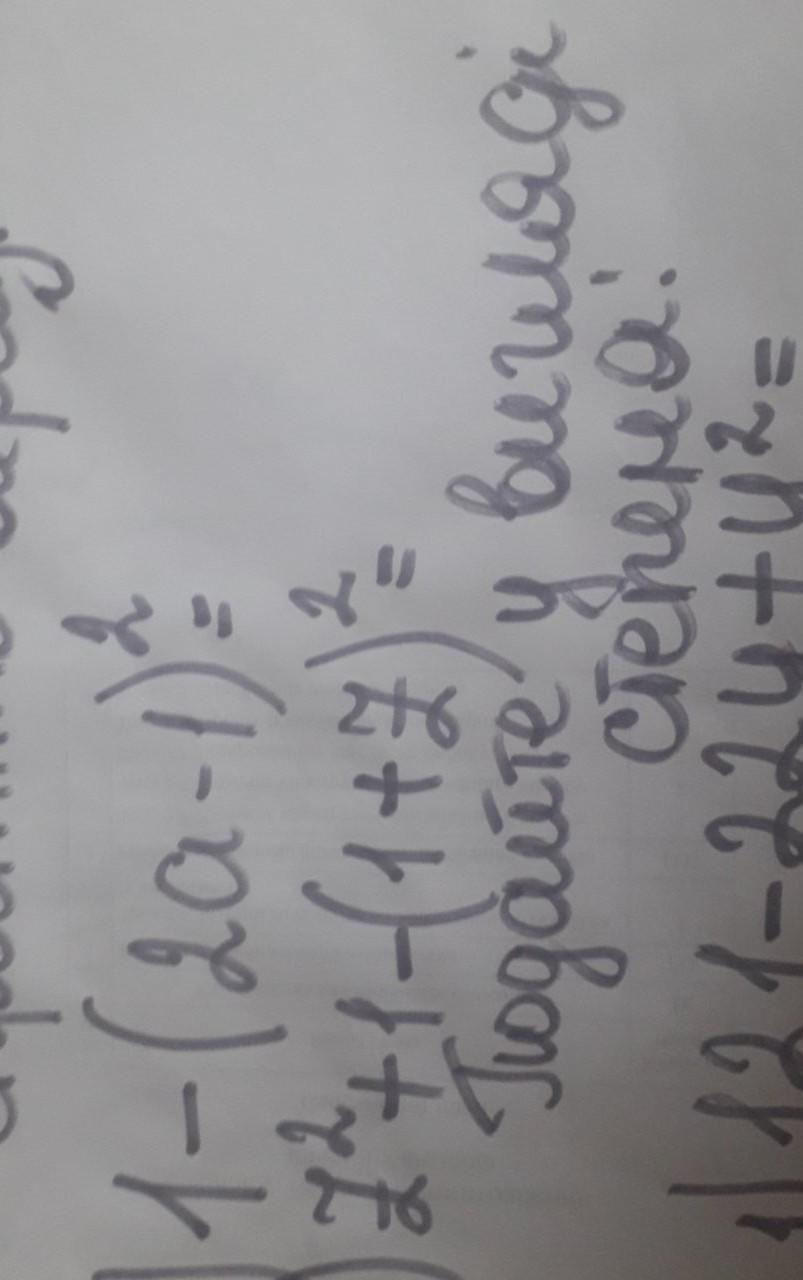 ) 1-(2a-1)²=
) z²+1-(1+z)²=
Подайте у вигляді
степеня:
1) 121-22y+y²=